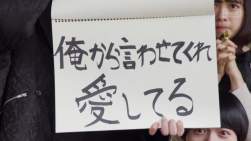 俺から言わせてくれ
愛してる